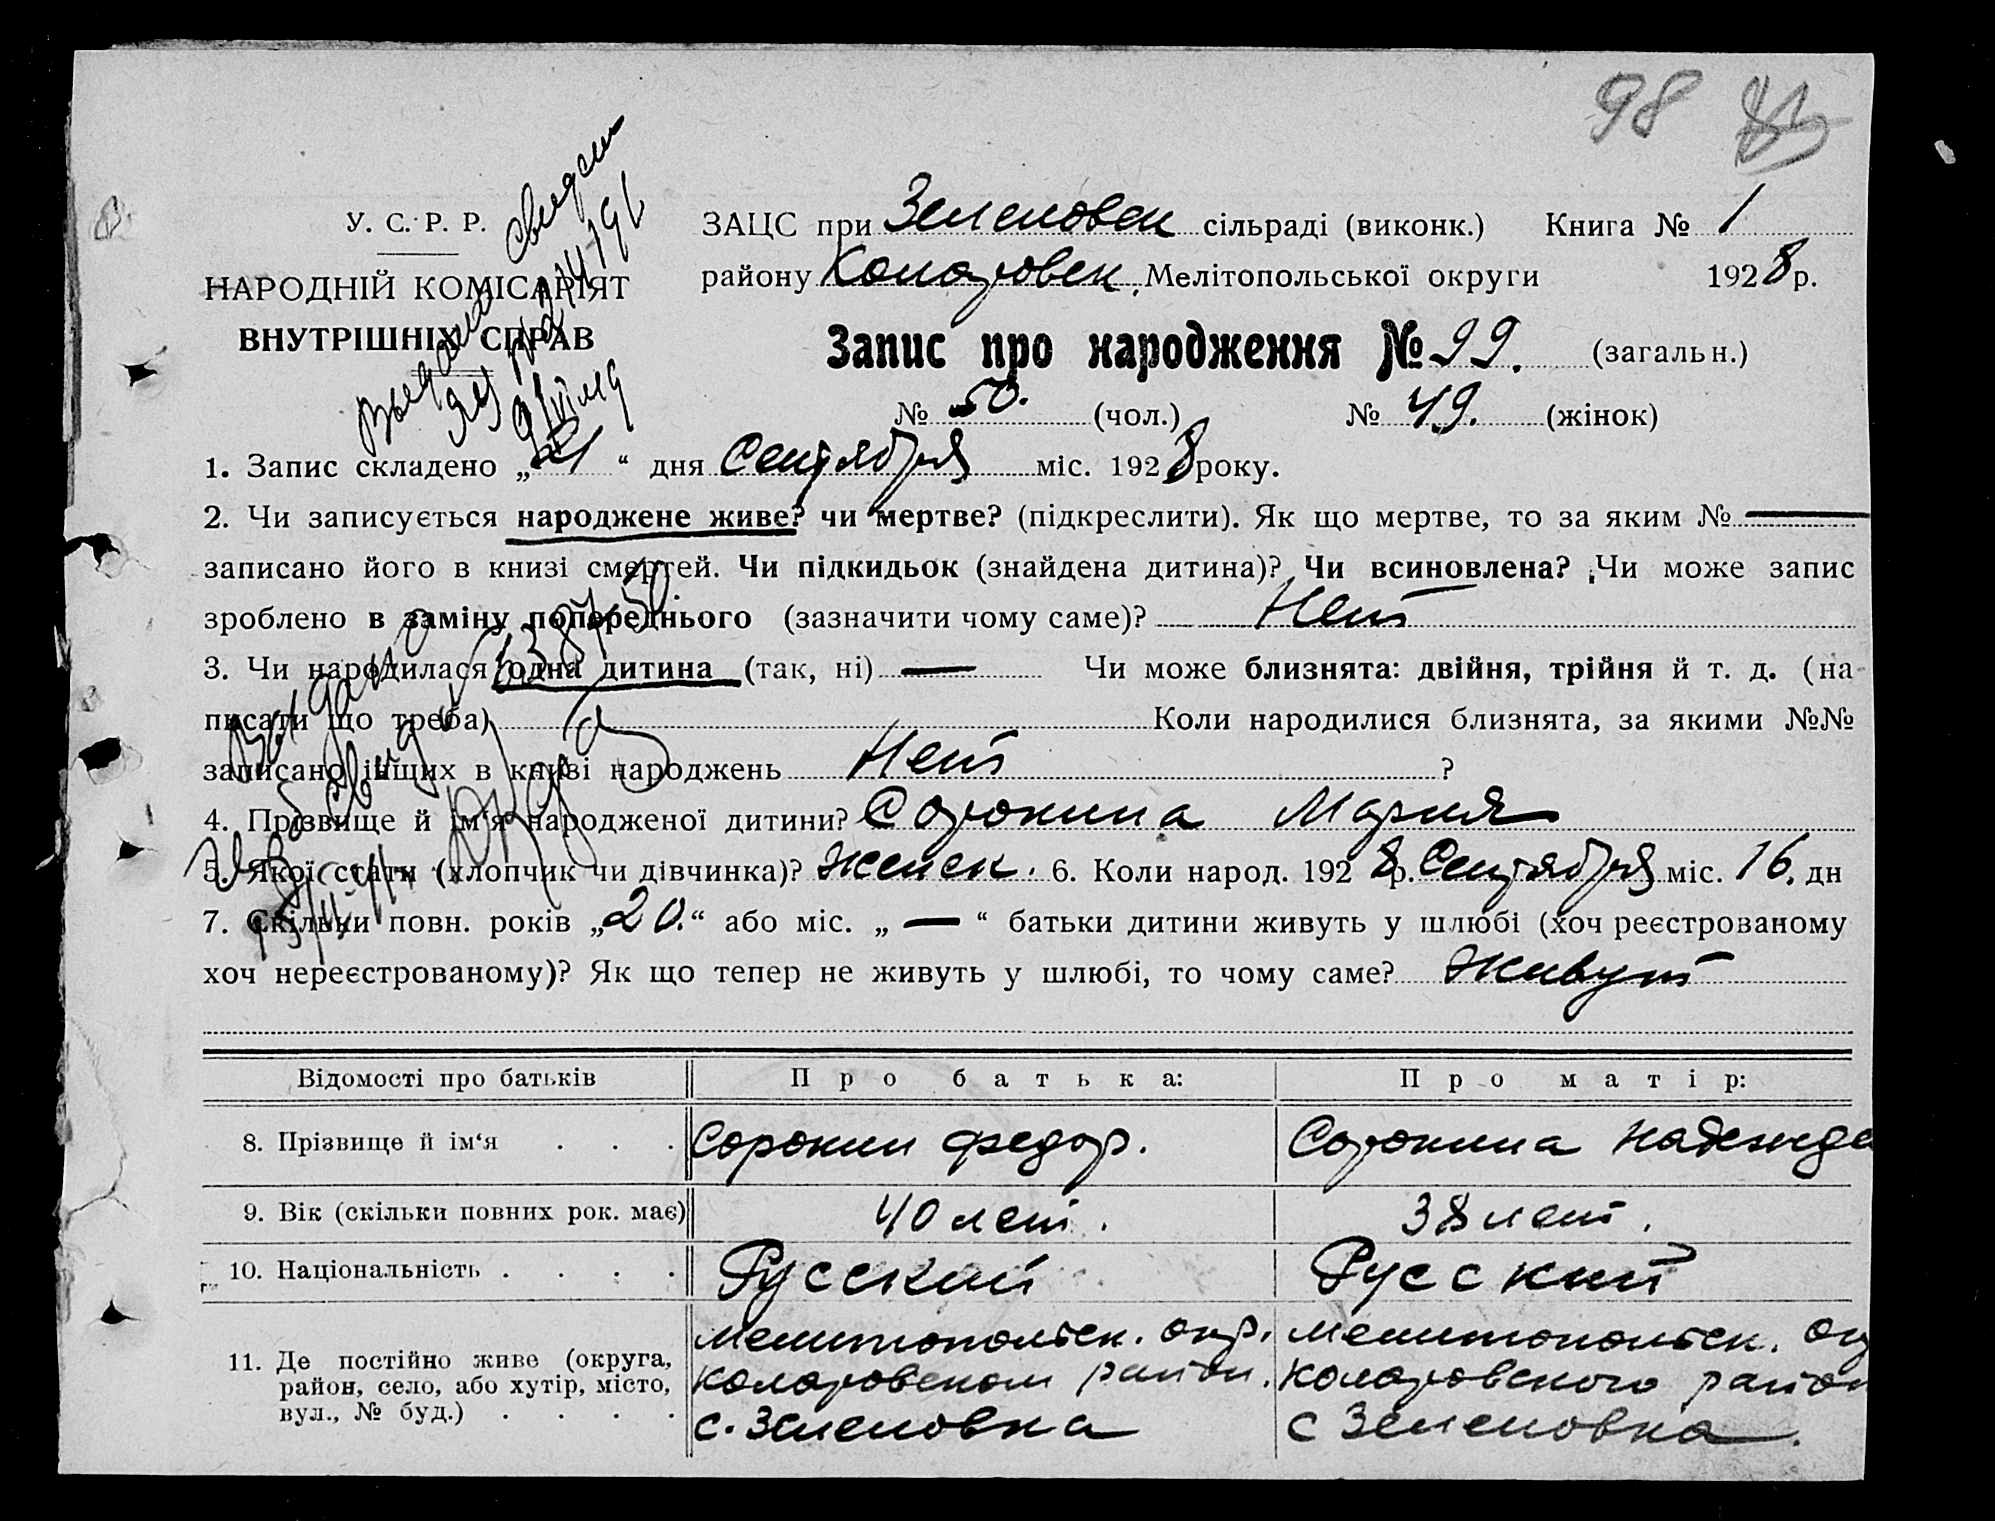 98
У. С. Р. Р.
НАРОДНІЙ КОМІСАРІЯТ
ВНУТРІШНІХ СПРАВ
ЗАЦС при Зеленовск сільраді (виконк.) Книга № 1
району Коларовск. Мелітопольської округи 1928 р.
Запис про народження № 99. (загальн.)
№ 50. (чол.) № 49. (жінок)
1. Запис складено „21“ дня Сентября міс. 1928 року.
2. Чи записується народжене живе? чи мертве? (підкреслити). Як що мертве, то за яким № —
записано його в книзі смертей. Чи підкидьок (знайдена дитина)? Чи всиновлена? Чи може запис
зроблено в заміну попереднього (зазначити чому саме)? Нет
3. Чи народилася одна дитина (так, ні) — Чи може близнята: двійня, трійня й т. д. (на-
писати що треба) Коли народилися близнята, за якими №№
записано інщих в книзі народжень Нет ?
4. Прізвище й ім'я народженої дитини? Сорокина Мария
5. Якої стати (хлопчик чи дівчинка)? женск. 6. Коли народ. 1928 р. Сентября міс. 16. дн
7. Скільки повн. років „20.“ або міс. „—“ батьки дитини живуть у шлюбі (хоч реєстрованому
хоч нереєстрованому)? Як що тепер не живуть у шлюбі, то чому саме? живут
Відомості про батьків Про батька: Про матір:
8. Прізвище й ім‘я . . . Сорокин федор. Сорокина надежда
9. Вік (скільки повних рок. має) 40 лет. 38 лет.
10. Національність . . . . Русский Русский
11. Де постійно живе (округа, район, село, або хутір, місто, вул., № буд.) . . . .
мелитопольск. окр. коларовском район. с. Зеленовка
мелитопольск. ок коларовского район с Зеленовка.
Выдано свидет
Выдано